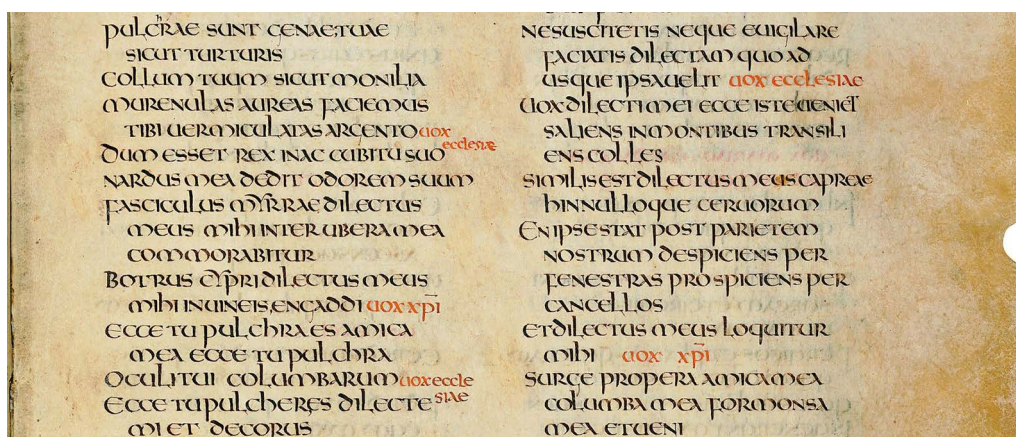 pulchrae sunt genae tuae
sicut turturis
collum tuum sicut monilia
murenulas aureas faciemus
tibi uermiculatas argento uox
ecclesiae
dum esset rex in ac cubitu suo
nardus mea dedit odorem suum
fasciculus myrrae dilectus
meus mihi inter ubera mea
commorabitur
Botrus cypri dilectus meus
mihi in uineis engaddi uox xp̄i
Ecce tu pulchra es amica
mea ecce tu pulchra
Oculi tui columbarum uox eccle
siae
Ecce tu pulcher es dilecte
mi et decorus
ne suscitetis neque euigilare
faciatis dilectam quo ad
usque ipsa uelit uox ecclesiae
Uox dilecti mei ecce iste ueniet
saliens in montibus transili
ens colles
Similis est dilectus meus capreae
hinnulloque ceruorum
En ipse stat post parietem
nostrum despiciens per
fenestras prospiciens per
cancellos
Et dilectus meus loquitur
mihi uox xp̄i
Surge propera amica mea
columba mea formonsa
mea et ueni